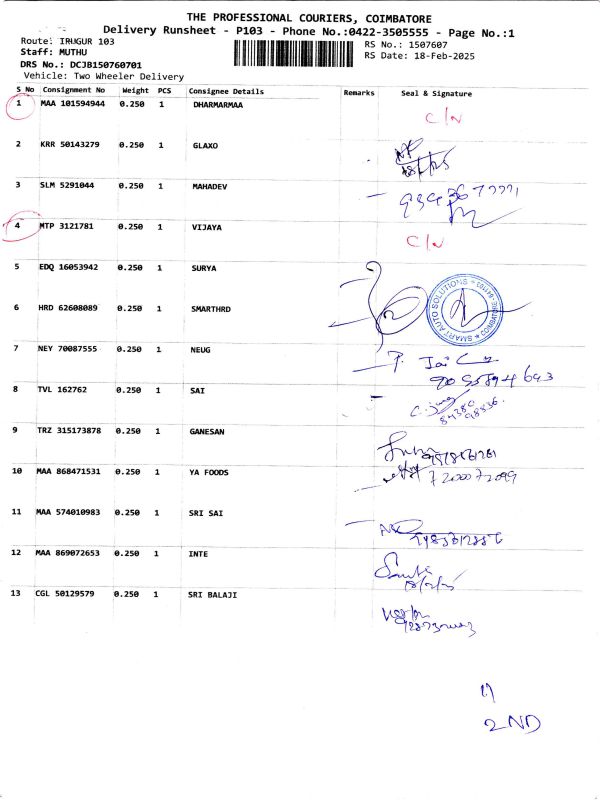 THE PROFESSIONAL COURIERS, COIMBATORE
Delivery Runsheet - P103 - Phone No.:0422-3505555 - Page No.:1
Route: IRUGUR 103
RS No.: 1507607
Staff: MUTHU
RS Date: 18-Feb-2025
DRS No.: DCJB150760701
Vehicle: Two Wheeler Delivery
S No Consignment No Weight PCS Consignee Details Remarks Seal & Signature
1 MAA 101594944 0.250 1 DHARMARMAA C/N
2 KRR 50143279 0.250 1 GLAXO
3 SLM 5291044 0.250 1 MAHADEV
4 MTP 3121781 0.250 1 VIJAYA C/N
5 EDQ 16053942 0.250 1 SURYA
6 HRD 62608089 0.250 1 SMARTHRD SMART AUTO SOLUTIONS
7 NEY 70087555 0.250 1 NEUG
8 TVL 162762 0.250 1 SAI
9 TRZ 315173878 0.250 1 GANESAN
10 MAA 868471531 0.250 1 YA FOODS
11 MAA 574010983 0.250 1 SRI SAI
12 MAA 869072653 0.250 1 INTE
13 CGL 50129579 0.250 1 SRI BALAJI
2 ND